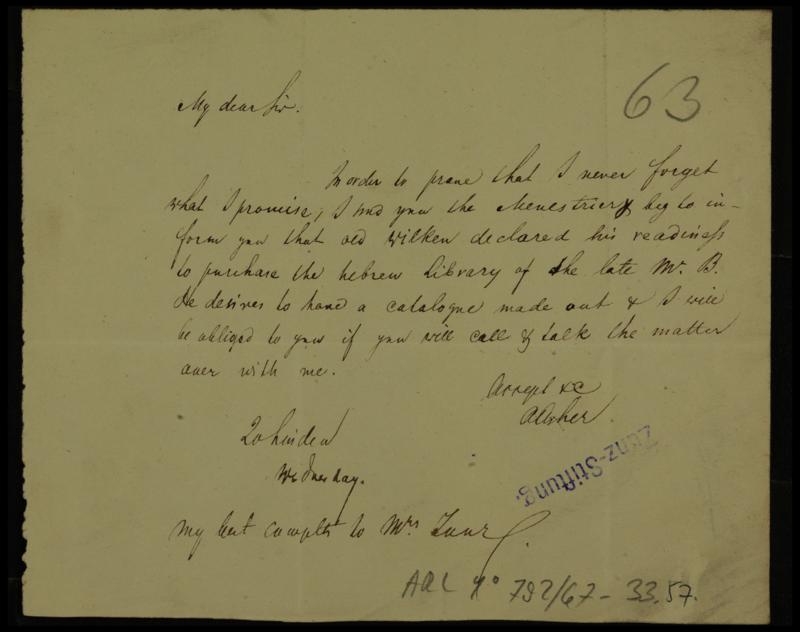 63
My dear Sir.
In order to prove that I never forget
what I promise, I send you the Menestrier & beg to in-
form you that old Wilken declared his readiness
to purchase the hebrew Library of the late Mr. B.
He desires to have a catalogue made out & I will
be obliged to you if you will call & talk the matter
over with me.
Accept &c
AAsher
20 Linden
Wednesday.
My best complts to Mrs. Zunz.
Zunz-Stiftung.
ARC 4° 792/G7- 33.57.